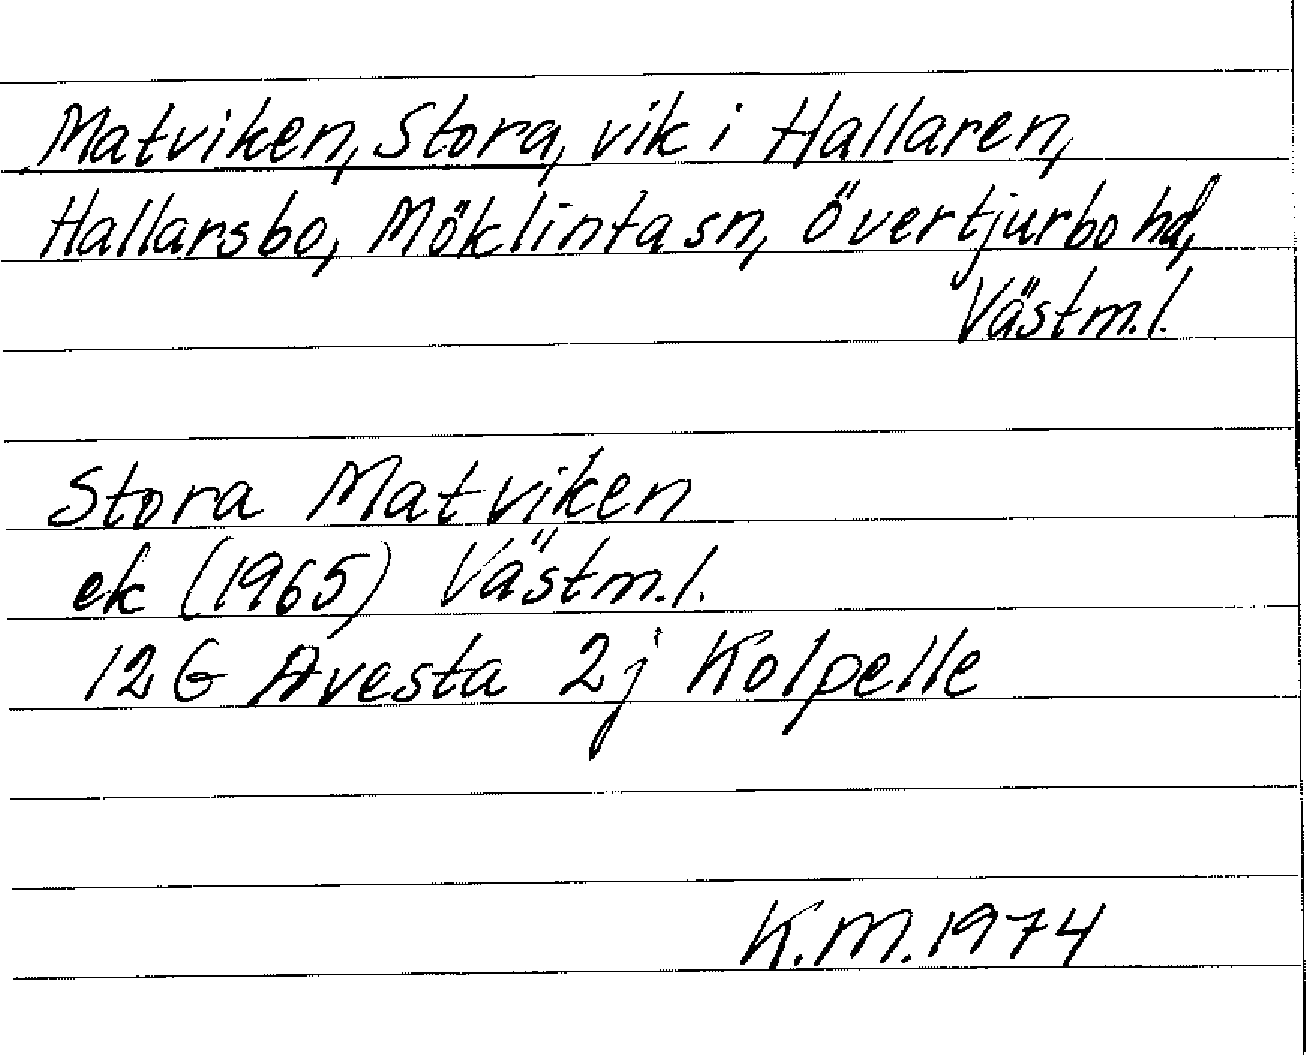 Matviken, Stora, vik i Hallaren,
Hallarsbo, Möklinta sn, Övertjurbo hd,
Västm.l.
Stora Matviken
ek (1965) Västm.l.
12 G Avesta 2j Kolpelle
K.M. 1974